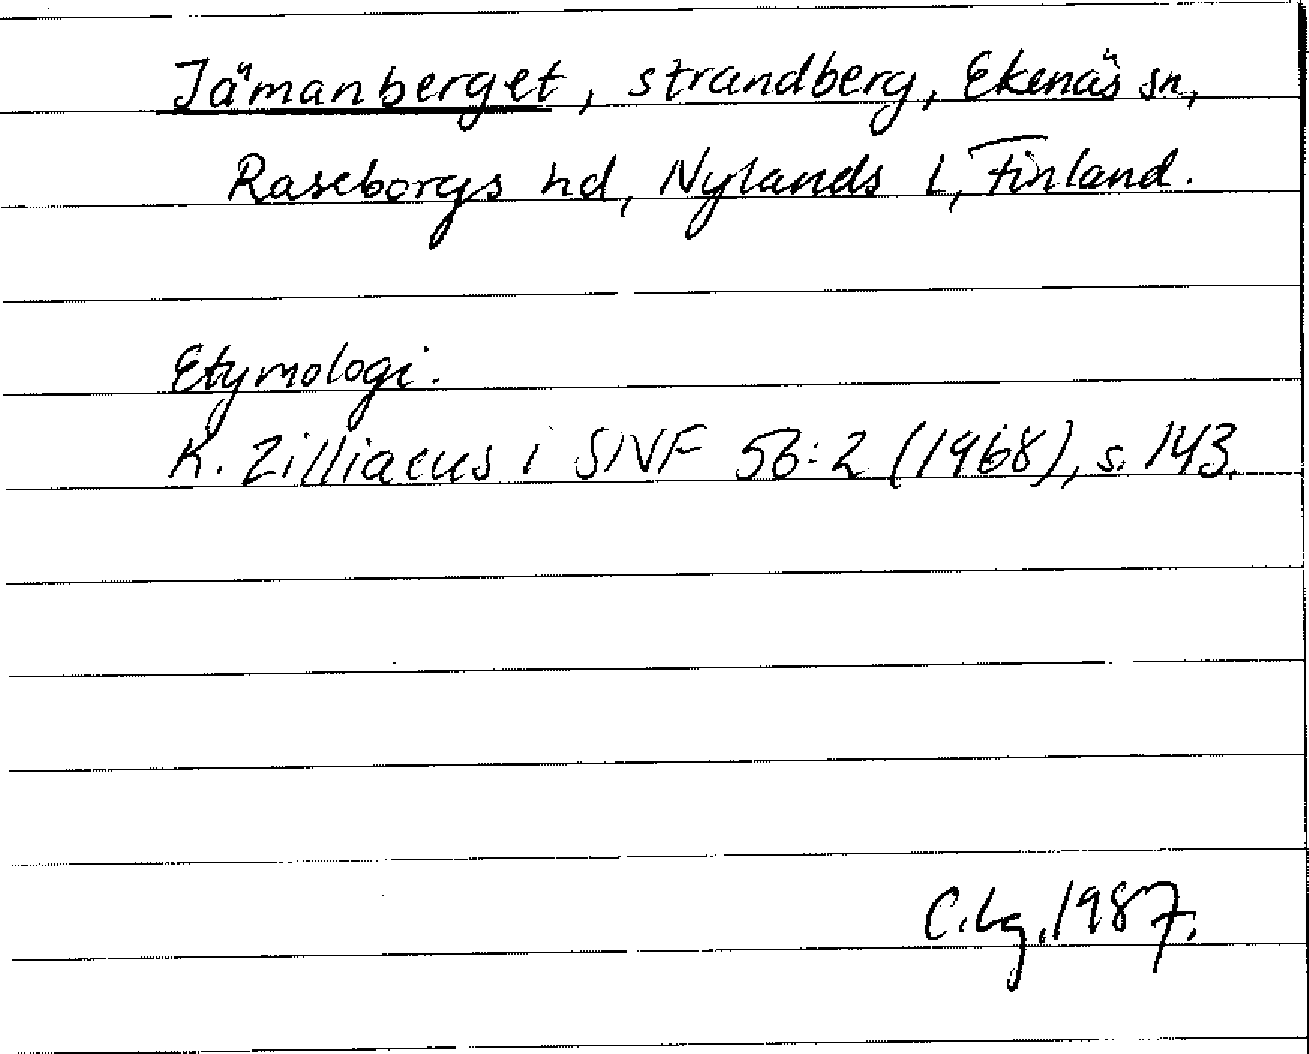 Jämanberget, strandberg, Ekenäs sn,
Raseborgs hd, Nylands l, Finland.
Etymologi.
K. Zilliacus i SNF 56:2 (1968), s. 143.
C.Lg. 1987.